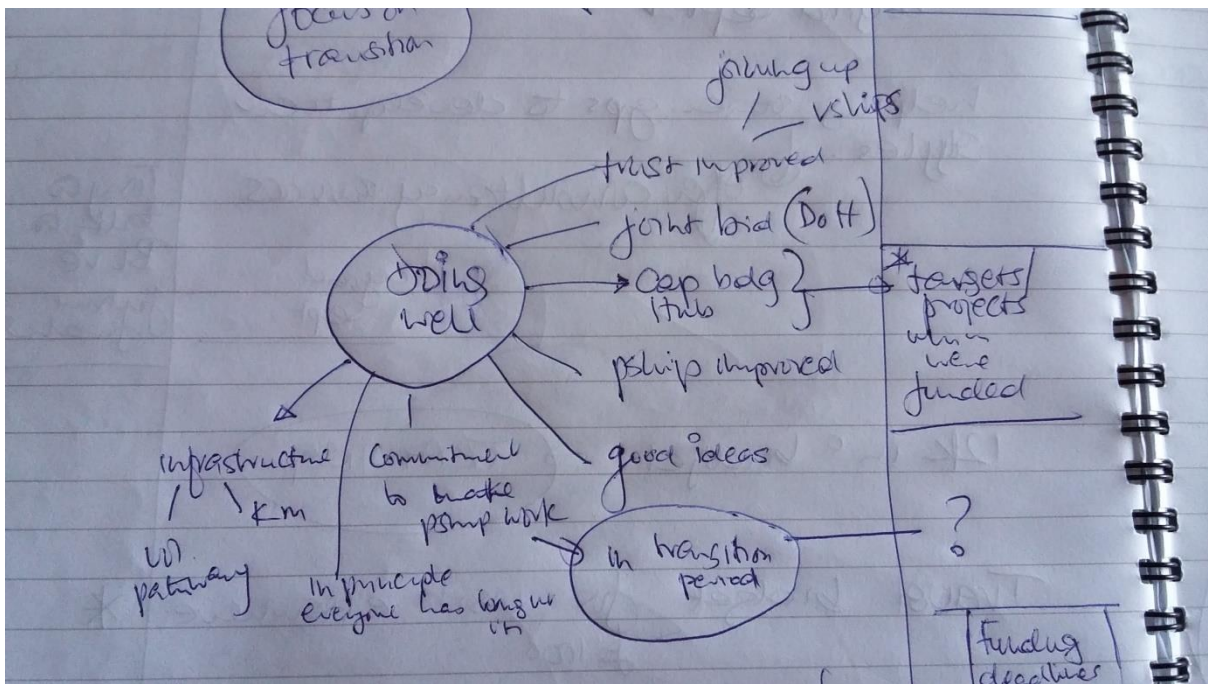 focus on
transition
joining up
rships
trust improved
joint bid (DoH)
Doing
well
cap bdg
Hub
* targets
projects
which
were
funded
pship improved
good ideas
infrastructure
KM
pathway
Commitment
to make
pship work
in principle
everyone has
in
in transition
period
?
Funding
deadlines